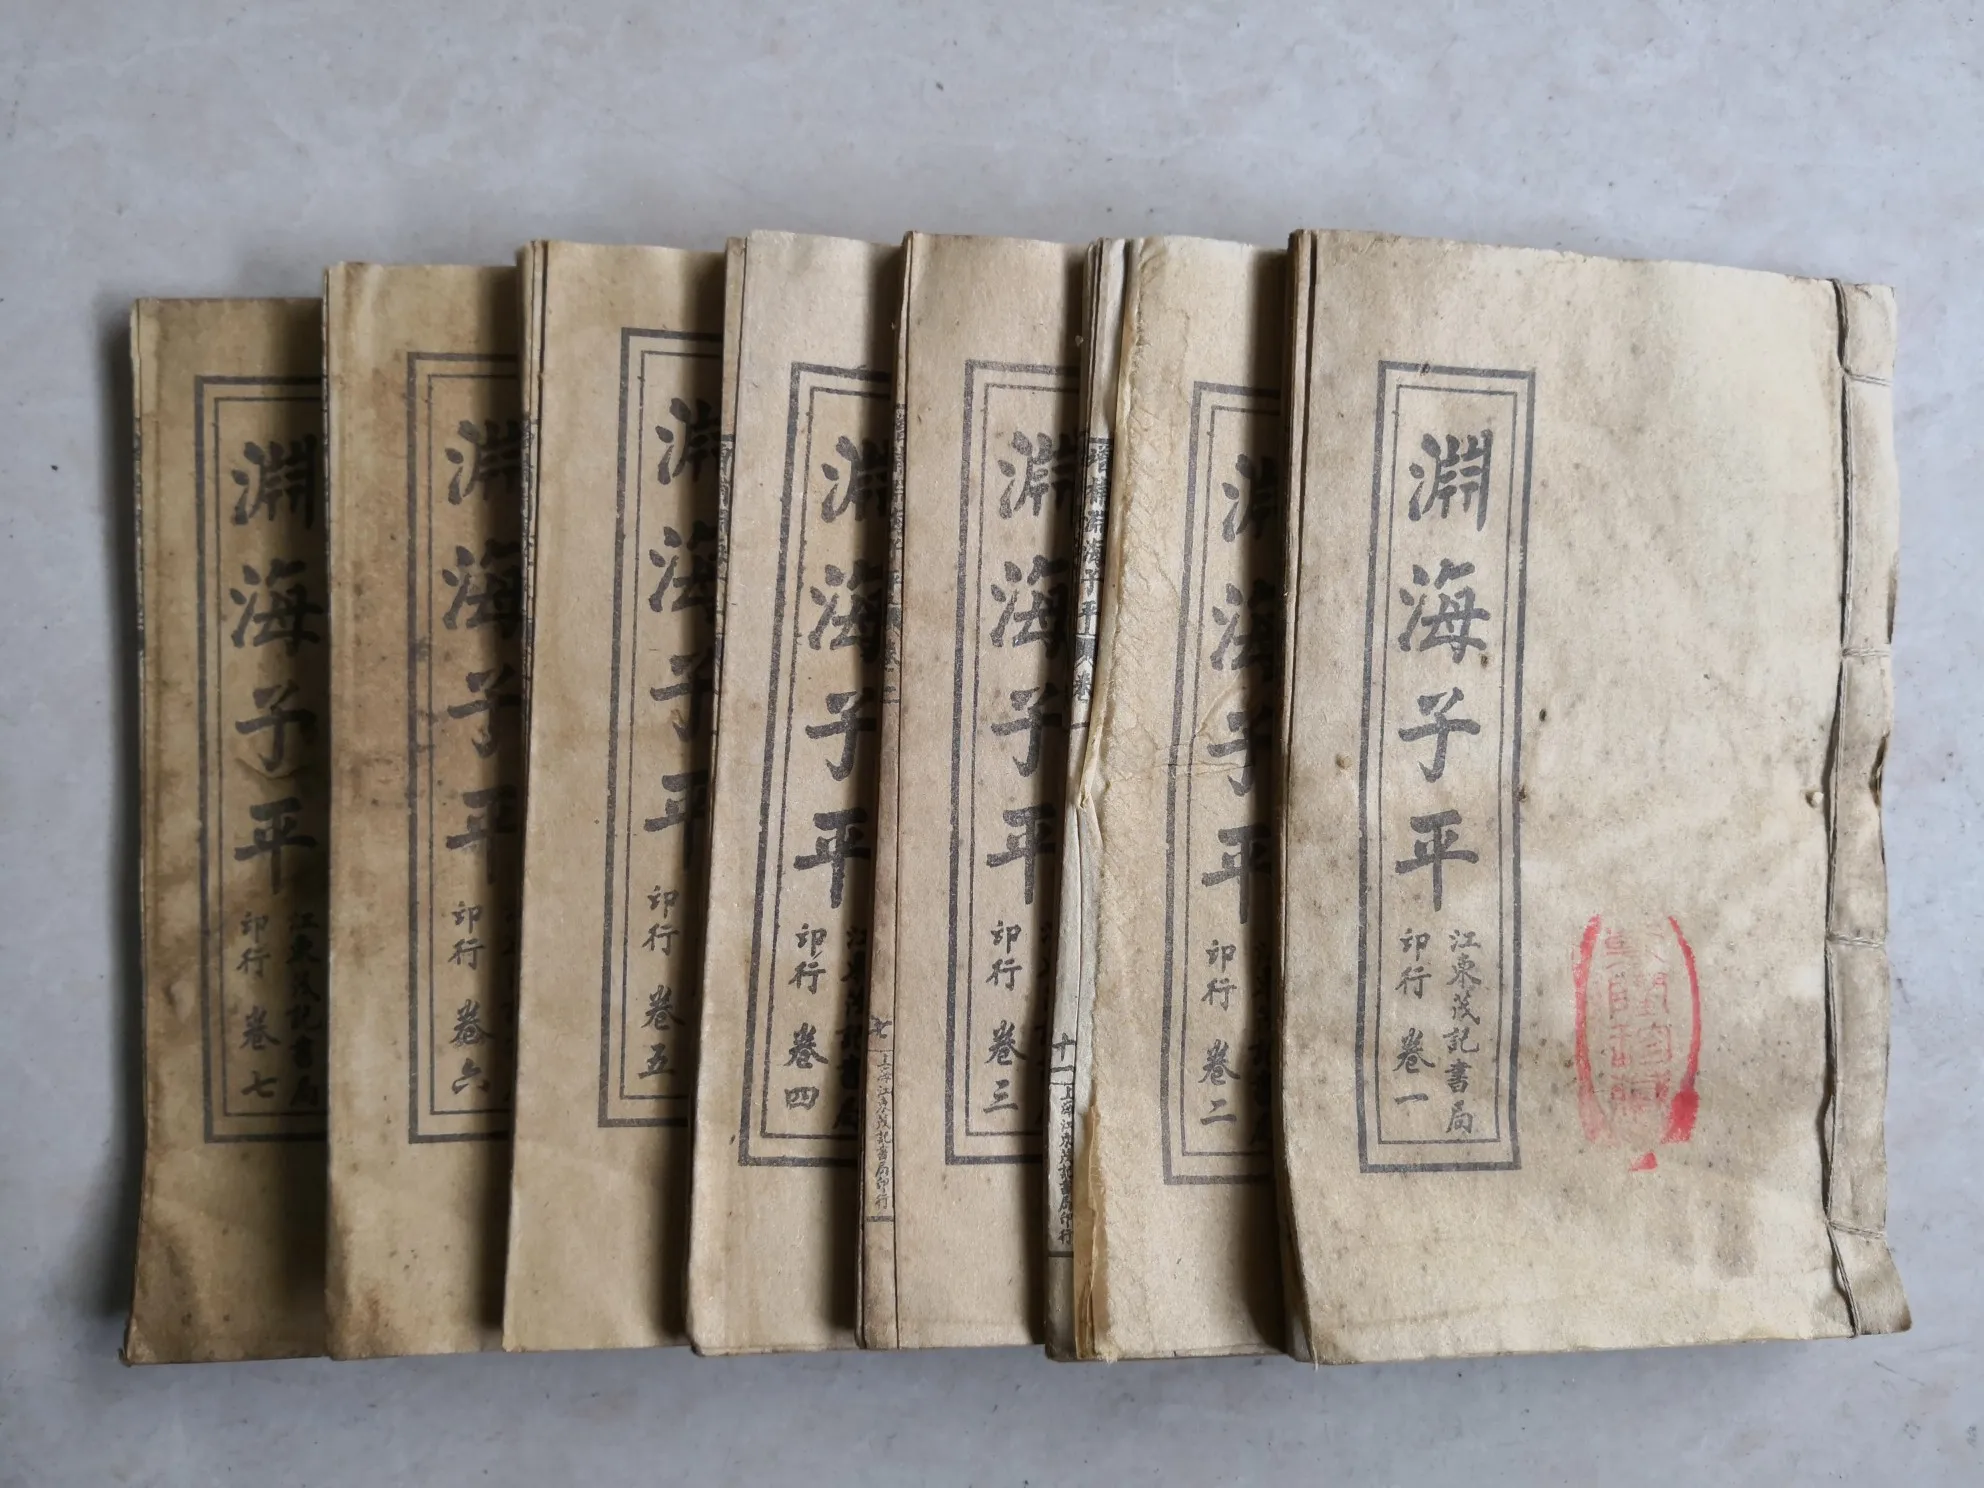 淵海子平
江東茂記書局
印行 卷一
淵海子平
印行 卷二
增補淵海子平
卷一
十一
上海江東茂記書局印行
淵海子平
印行 卷三
子平
卷二
七
上海江東茂記書局印行
淵海子平
江東茂記書局
印行 卷四
淵海子平
印行 卷五
淵海子平
印行 卷六
淵海子平
江東茂記書局
印行 卷七